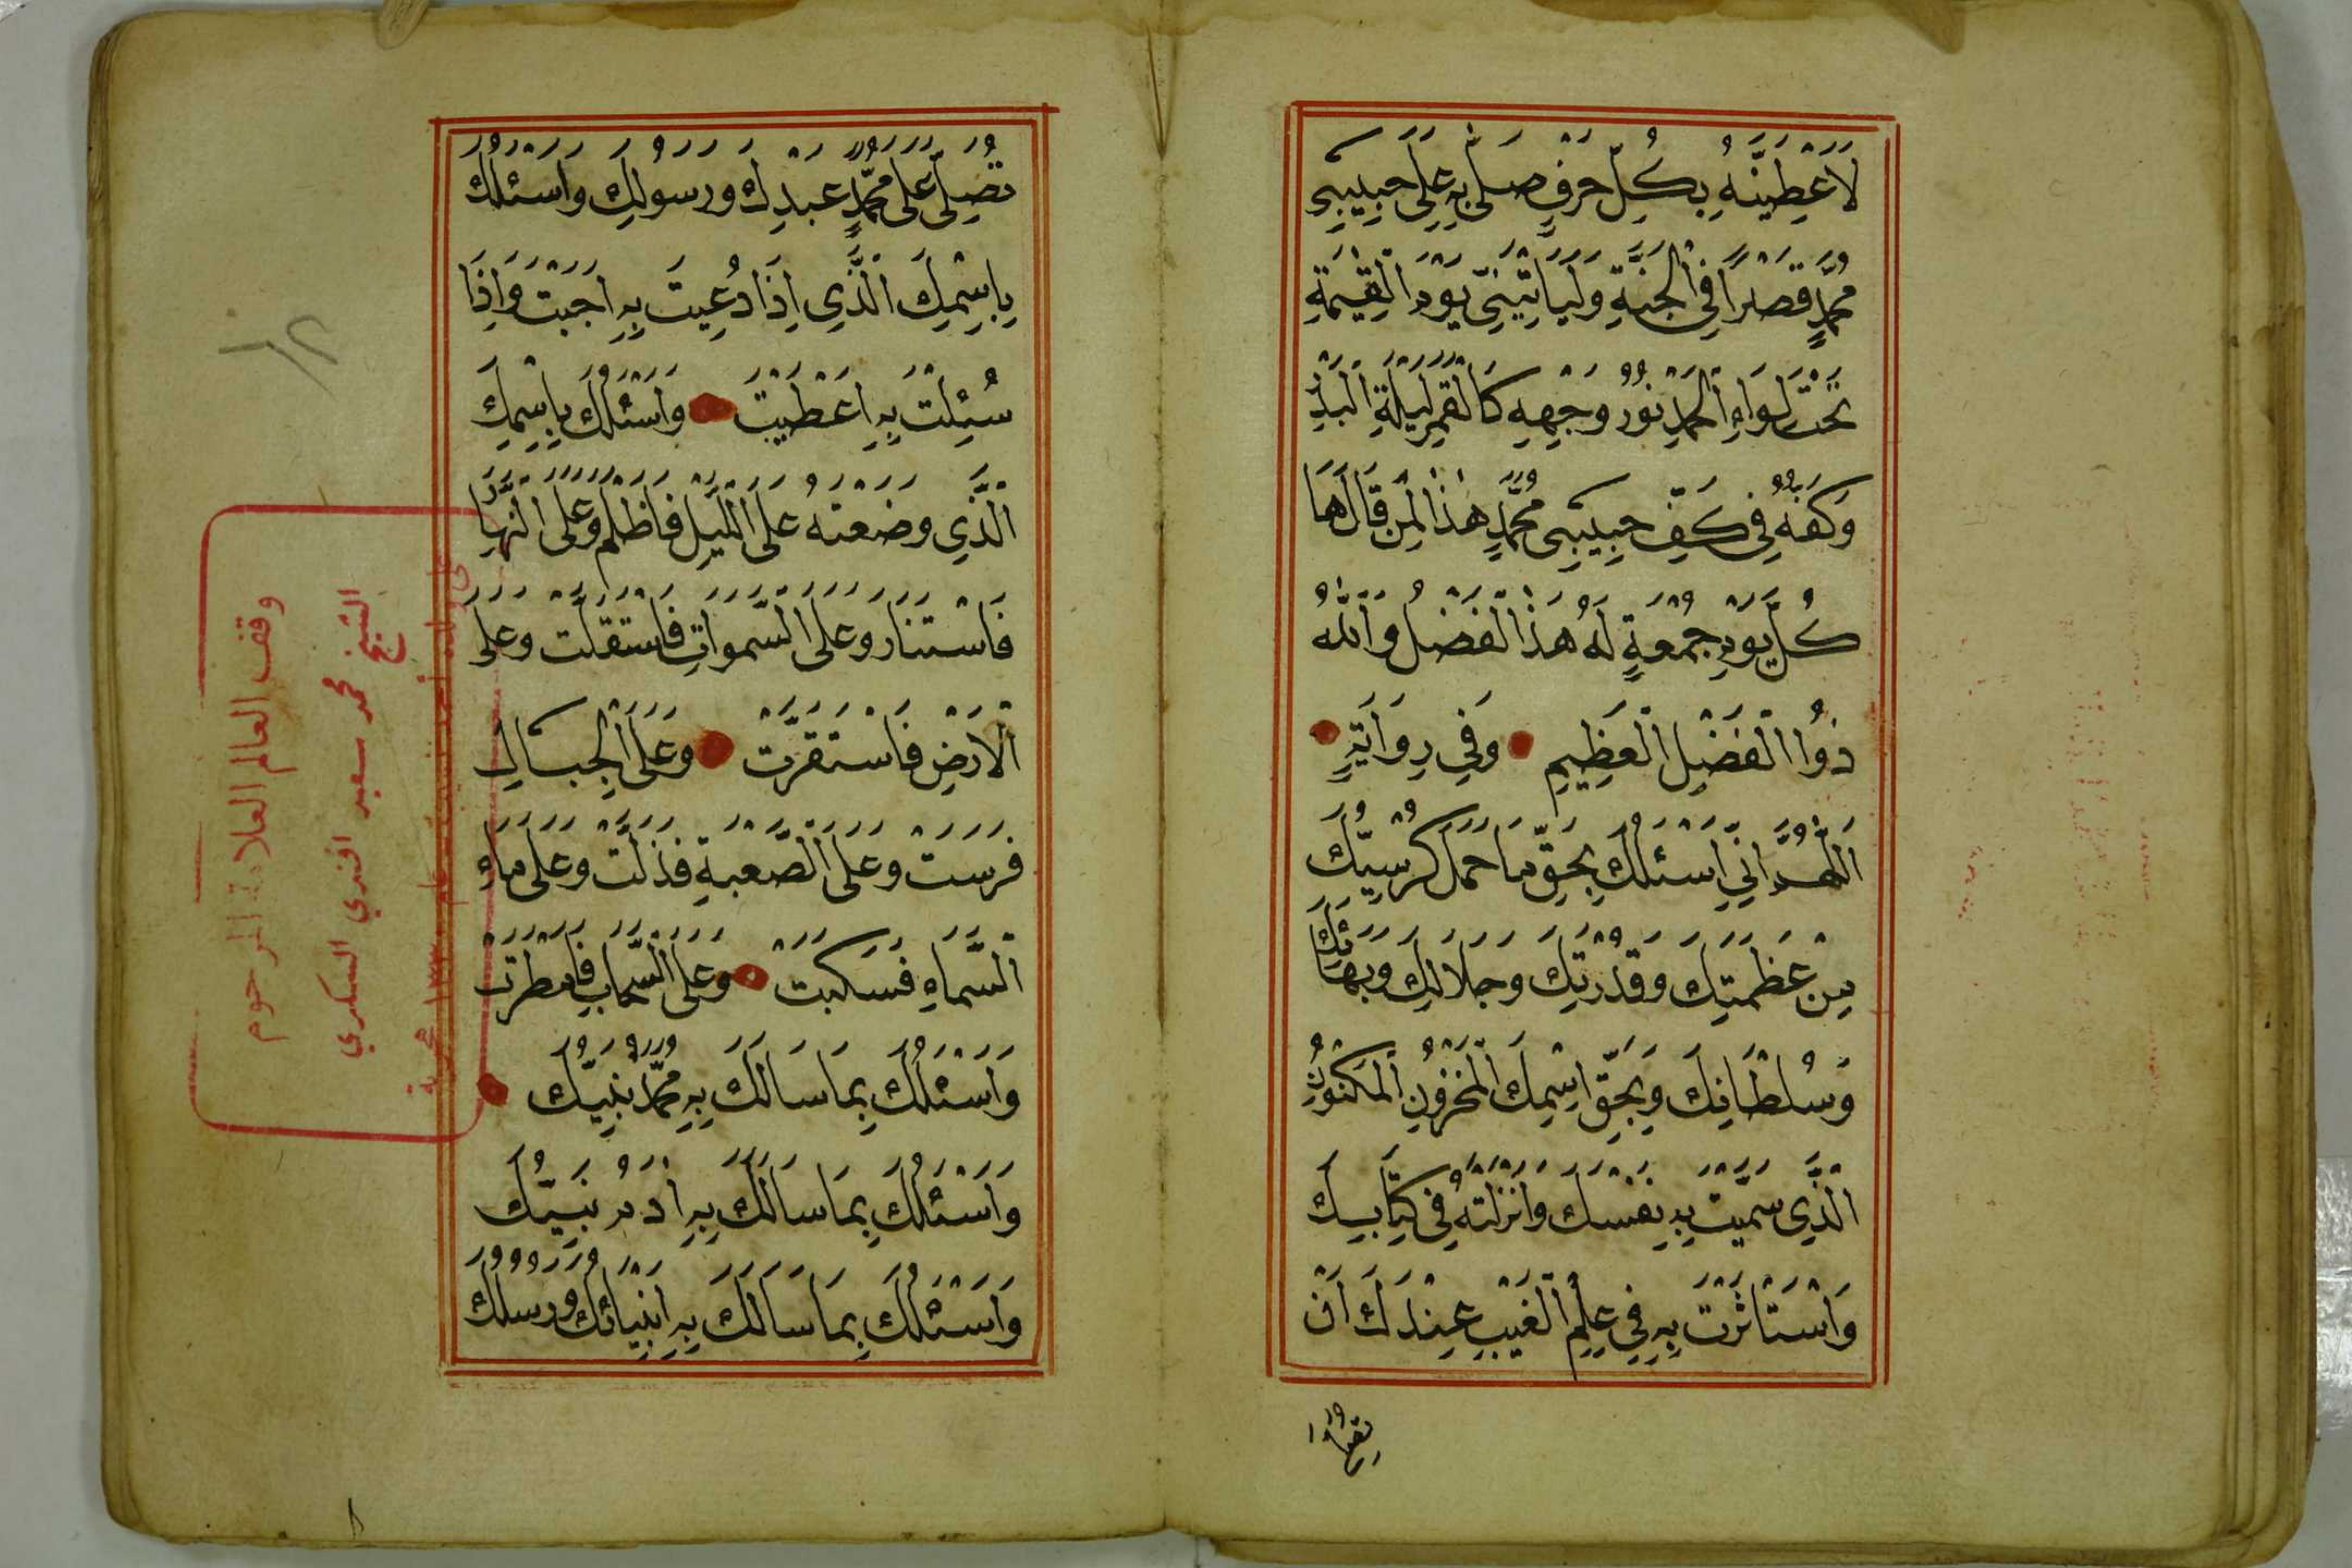 لَاُعْطِيَنَّهُ بِكُلِّ حَرْفٍ صَلَّى بِهِ عَلَى حَبِيبِى
مُحَمَّدٍ قَصْراً فِى الْجَنَّةِ وَلَيَأتِيَنِّى يَوْمَ الْقِيٰمَةِ
تَحْتَ لِوَاءِ الْحَمْدِ نُورُ وَجْهِهِ كَالْقَمَرِ لَيْلَةِ الْبَدْرِ
وَكَفُّهُ فِى كَفِّ حَبِيبِى مُحَمَّدٍ هٰذَا لِمَنْ قَالَهَا
كُلَّ يَوْمِ جُمُعَةٍ لَهُ هٰذَا الْفَضْلُ وَاللّٰهُ
ذُوا الْفَضْلِ الْعَظِيمِ وَفِي رِوَايَةٍ
اَللّٰهُمَّ اِنِّي اَسْئَلُكَ بِحَقِّ مَا حَمَلَ كُرْسِيُّكَ
مِنْ عَظَمَتِكَ وَقُدْرَتِكَ وَجَلَالِكَ وَبَهَائِكَ
وَسُلْطَانِكَ وَبِحَقِّ اسْمِكَ الْمَخْزُونِ الْمَكْنُونِ
الَّذِي سَمَّيْتَ بِهِ نَفْسَكَ وَاَنْزَلْتَهُ فِى كِتَابِكَ
وَاسْتَاثَرْتَ بِهِ فِي عِلْمِ الْغَيْبِ عِنْدَكَ اَنْ
تُصَلِّىَ عَلَى مُحَمَّدٍ عَبْدِكَ وَرَسُولِكَ وَاَسْئَلُكَ
بِاِسْمِكَ الَّذِي اِذَا دُعِيتَ بِهِ اَجَبْتَ وَاِذَا
سُئِلْتَ بِهِ اَعْطَيْتَ وَاَسْئَلُكَ بِاِسْمِكَ
الَّذِي وَضَعْتَهُ عَلَى اللَّيْلِ فَاَظْلَمَ وَعَلَى النَّهَارِ
فَاسْتَنَارَ وَعَلَى السَّمَوَاتِ فَاسْتَقَلَّتْ وَعَلَى
الْاَرْضِ فَاسْتَقَرَّتْ وَعَلَى الْجِبَالِ
فَرَسَتْ وَعَلَى الصَّعْبَةِ فَذَلَّتْ وَعَلَى مَاءِ
السَّمَاءِ فَسَكَبَتْ وَعَلَى السَّحَابِ فَاَمْطَرَتْ
وَاَسْئَلُكَ بِمَا سَالَكَ بِهِ مُحَمَّدٌ نَبِيُّكَ
وَاَسْئَلُكَ بِمَا سَالَكَ بِهِ اٰدَمُ نَبِيُّكَ
وَاَسْئَلُكَ بِمَا سَالَكَ بِهِ اَنْبِيَائُكَ وَرُسُلُكَ
وقف العالم العلامة المرحوم
الشيخ محمد سعيد افندي السكري